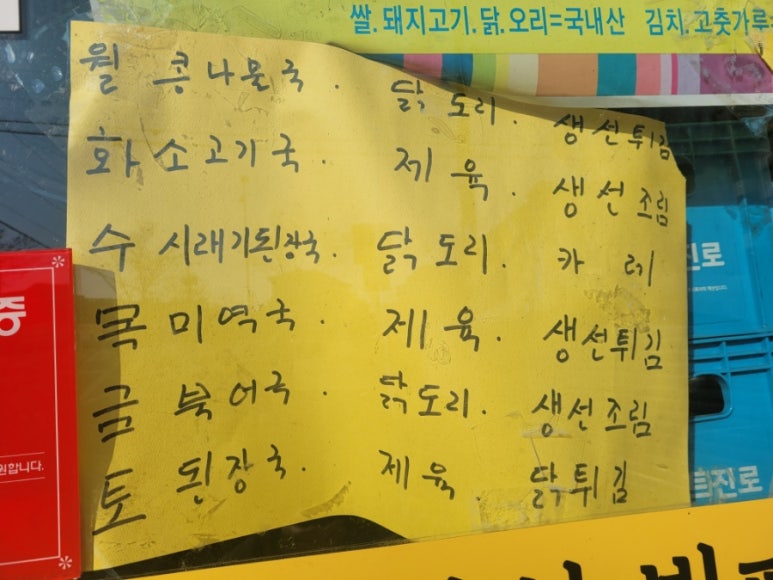 쌀. 돼지고기. 닭. 오리=국내산 김치. 고춧가루
월 콩나물국. 닭도리. 생선튀김
화 소고기국. 제육. 생선조림
수 시래기된장국. 닭도리. 카레
목 미역국. 제육. 생선튀김
금 북어국. 닭도리. 생선조림
토 된장국. 제육 닭튀김
증
원합니다.
진로
진로